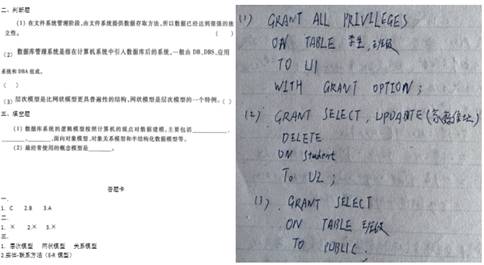 二、判断题
(1) 在文件系统管理阶段,由文件系统提供数据存取方法,所以数据已经达到很强的独
立性。 ( )
(2) 数据库管理系统是指在计算机系统中引入数据库后的系统,一般由 DB、DBS、应用
系统和 DBA 组成。
( )
(3) 层次模型是比网状模型更具普遍性的结构,网状模型是层次模型的一个特例。( )
三、填空题
(1) 数据库系统的逻辑模型按照计算机的观点对数据建模,主要包括________、
________、________、面向对象模型、对象关系模型和半结构化数据模型等。
(2) 最经常使用的概念模型是________。
答题卡
一.
1. C 2.B 3.A
二.
1. × 2.× 3.×
三.
1. 层次模型 网状模型 关系模型
2.实体-联系方法(E-R 模型)
(1) GRANT ALL PRIVILEGES
ON TABLE 学生, 班级
TO U1
WITH GRANT OPTION;
(2) GRANT SELECT, UPDATE(家庭住址)
DELETE
ON Student
To U2;
(3) GRANT SELECT
ON TABLE 班级
TO PUBLIC.